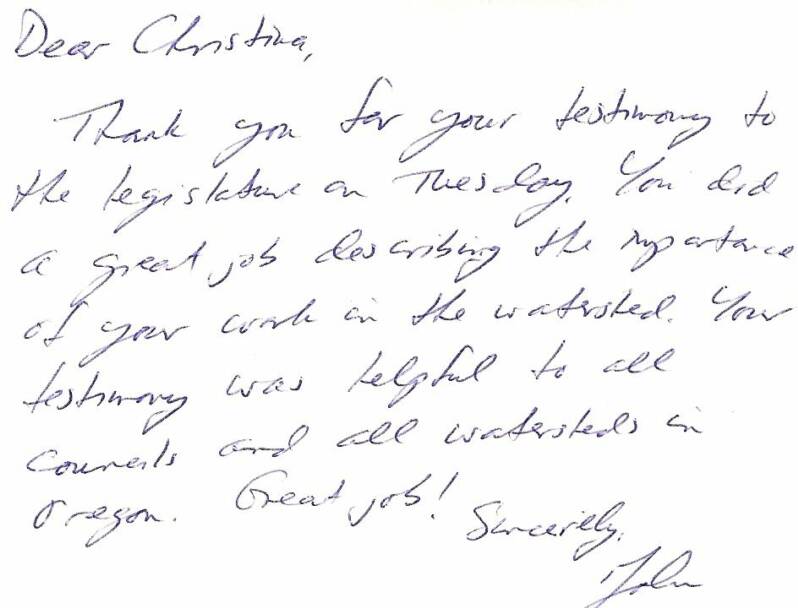 Dear Christina,
Thank you for your testimony to
the legislature on Tuesday. You did
a great job describing the importance
of your work in the watershed. Your
testimony was helpful to all
councils and all watersheds in
Oregon. Great job!
Sincerely,
John